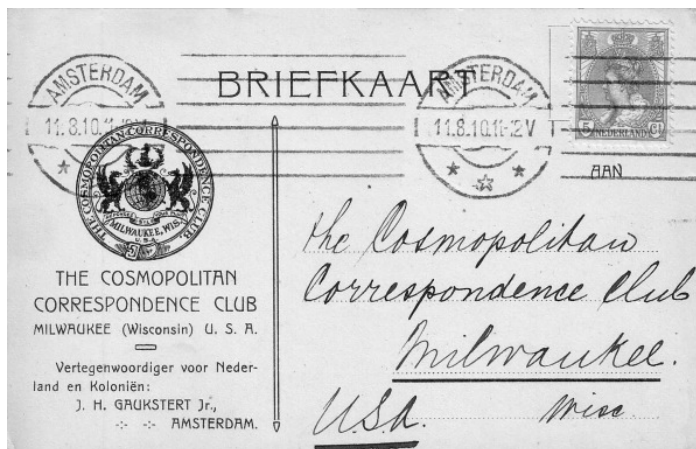 BRIEFKAART
AMSTERDAM
11.8.10.11-12V
AMSTERDAM
11.8.10.11-12V
5 NEDERLAND Ct
AAN
THE COSMOPOLITAN CORRESPONDENCE CLUB
MILWAUKEE, WIS.
U.S.A.
THE COSMOPOLITAN
CORRESPONDENCE CLUB
MILWAUKEE (Wisconsin) U. S. A.
Vertegenwoordiger voor Neder-
land en Koloniën:
J. H. GAUKSTERT Jr.,
AMSTERDAM.
the Cosmopolitan
Correspondence Club
Milwaukee.
U.S.A. Wisc